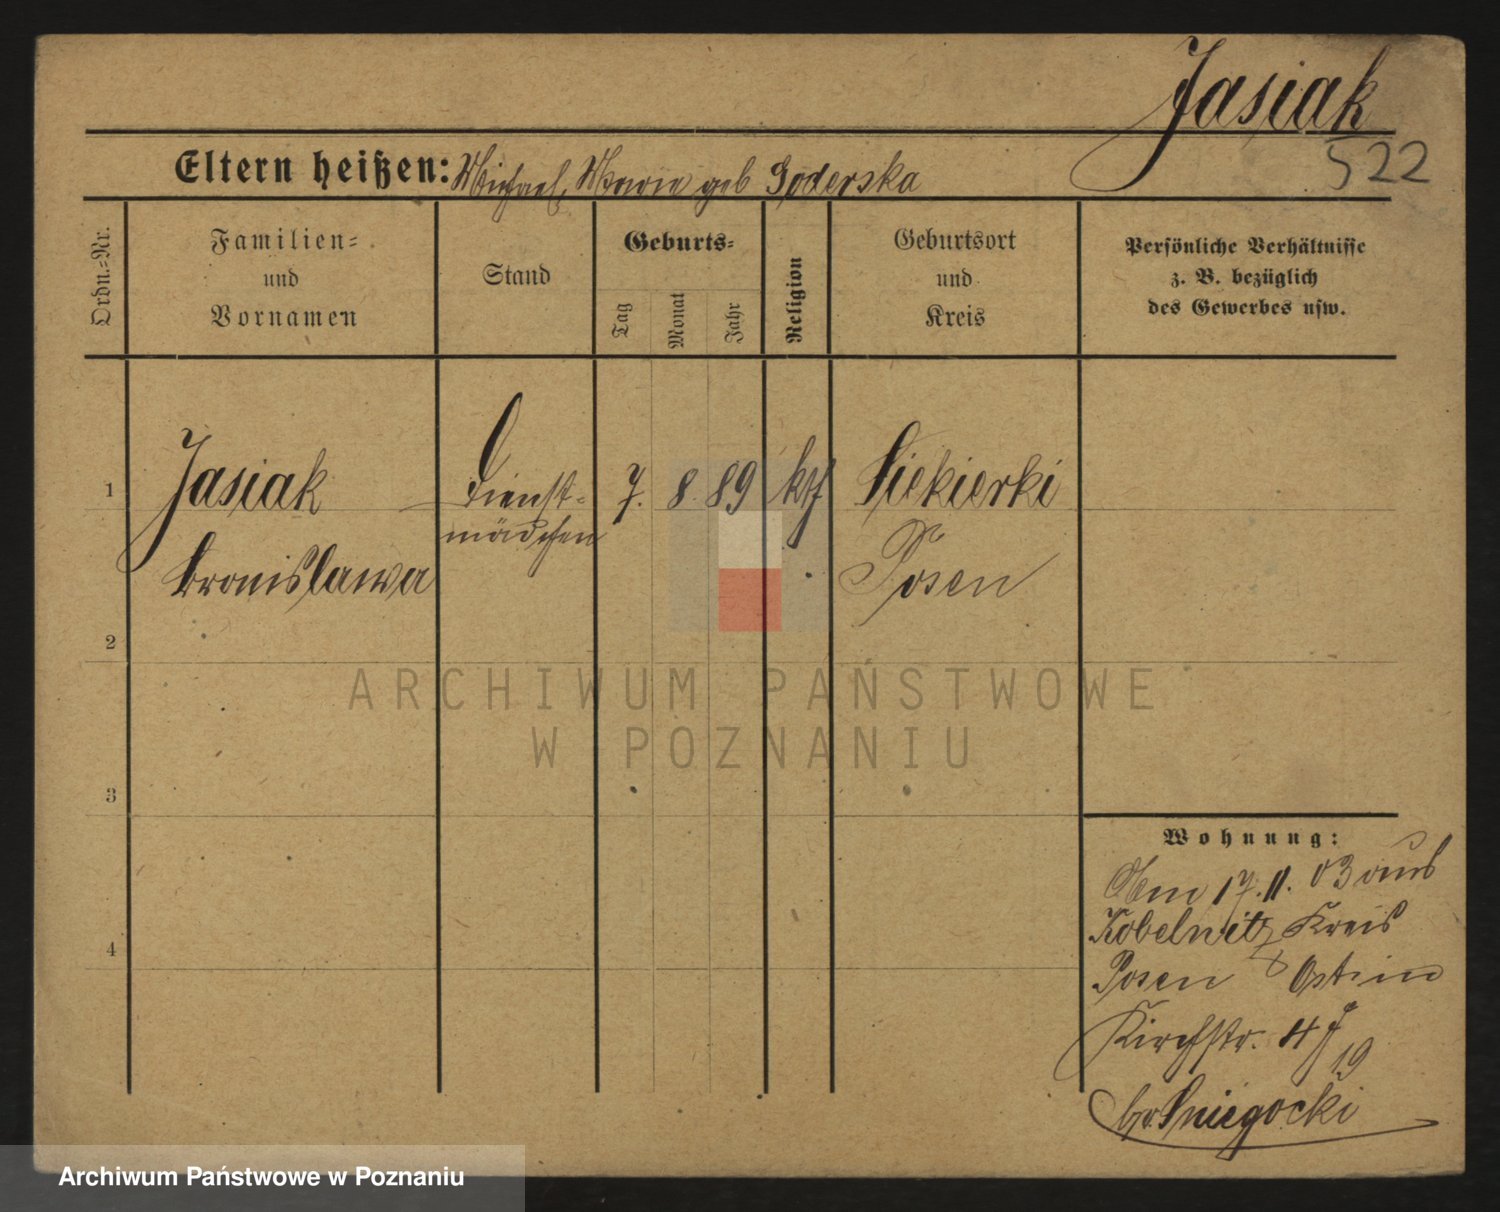 Jasiak
522
Eltern heißen: Michael, Maria geb Goderska
Ordn.-Nr.
Familien-
und
Vornamen
Stand
Geburts-
Tag
Monat
Jahr
Religion
Geburtsort
und
Kreis
Persönliche Verhältnisse
z. B. bezüglich
des Gewerbes usw.
1
Jasiak
Bronislawa
Dienst-
mädchen
7. 8. 89
kth
Siekierki
Posen
2
3
4
ARCHIWUM PAŃSTWOWE
W POZNANIU
Wohnung:
Am 17. 11. 03 aus
Kobelnitz Kreis
Posen Ost in
Kirchstr. 4
19
Sniegocki
Archiwum Państwowe w Poznaniu